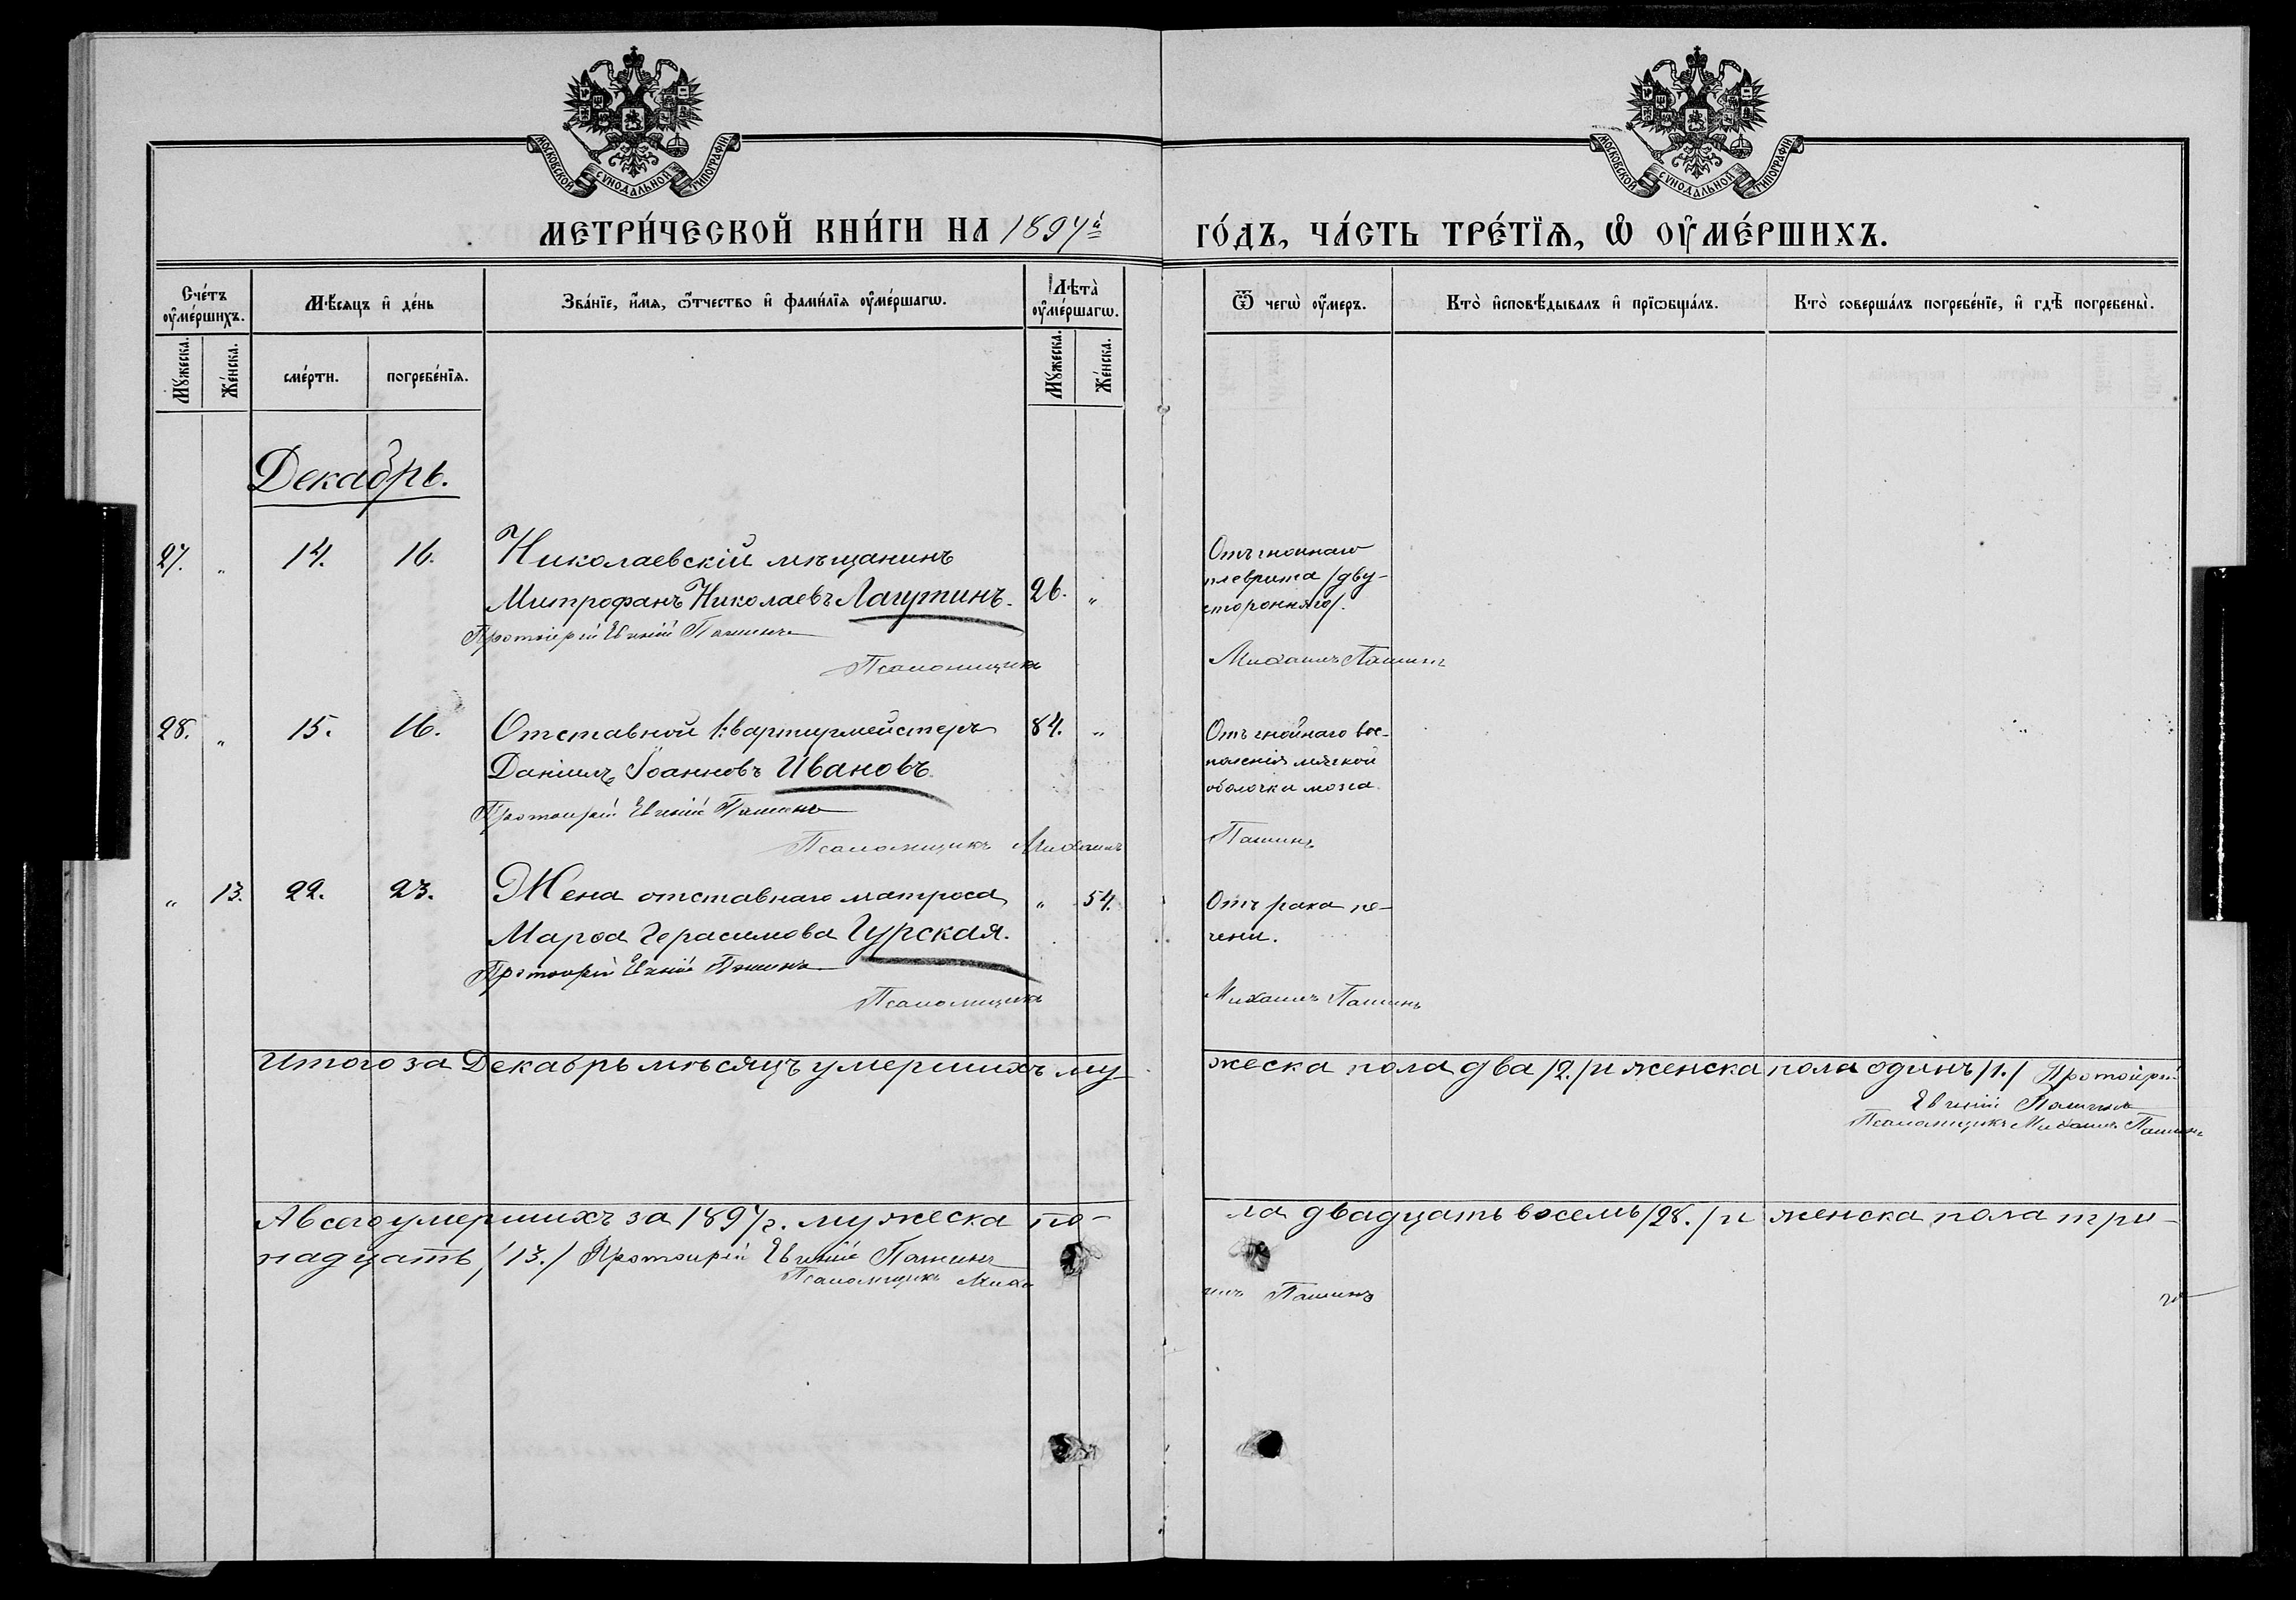 МОСКОВСКОЙ СѴНОДАЛЬНОЙ ТИПОГРАФІИ.
МОСКОВСКОЙ СѴНОДАЛЬНОЙ ТИПОГРАФІИ.
МЕТРИ́ЧЕСКОЙ КНИ́ГИ НА 1897й
ГО́ДЪ, ЧА́СТЬ ТРЕ́ТІѦ, Ѡ҆ ОУ҆МЕ́РШИХЪ.
Сче́тъ оу҆ме́ршихъ.
Мѣ́сяцъ и҆ де́нь
Зва́нїе, и҆́мя, ѻ҆́тчество и҆ фами́лїя оу҆ме́ршагѡ.
Лѣта̀ оу҆ме́ршагѡ.
Ѿ чегѡ̀ оу҆́меръ.
Кто̀ и҆сповѣ́дывалъ и҆ прїѡбща́лъ.
Кто̀ соверша́лъ погребе́нїе, и҆ гдѣ̀ погребены̀.
Мꙋ́жеска.
Же́нска.
сме́рти.
погребе́нїѧ.
Мꙋ́жеска.
Же́нска.
Декабрь.
27. „ 14. 16. Николаевскій мѣщанинъ
Митрофанъ Николаевъ Лагутинъ. 26. „
Протоіерей Евгеній Пашинъ
Псаломщикъ
Отъ гнойнаго
плеврита /дву-
сторонняго/.
Михаилъ Пашинъ
28. „ 15. 16. Отставной квартирмейстеръ 84. „
Даніилъ Іоанновъ Ивановъ.
Протоіерей Евгеній Пашинъ
Псаломщикъ Михаилъ
Отъ гнойнаго вос-
паленія мягкой
оболочки мозга.
Пашинъ
„ 13. 22. 23. Жена отставнаго матроса „ 54.
Марѳа Герасимова Гурская.
Протоіерей Евгеній Пашинъ
Псаломщикъ
Отъ рака пе-
чени.
Михаилъ Пашинъ
Итого за Декабрь мѣсяцъ умершихъ му-
жеска пола два /2./ и женска пола одинъ /1./ Протоіерей
Евгеній Пашинъ
Псаломщикъ Михаилъ Пашинъ
А всего умершихъ за 1897 г. мужеска по-
ла двадцать восемь /28./ и женска пола три-
надцать /13./ Протоіерей Евгеній Пашинъ
Псаломщикъ Миха
илъ Пашинъ